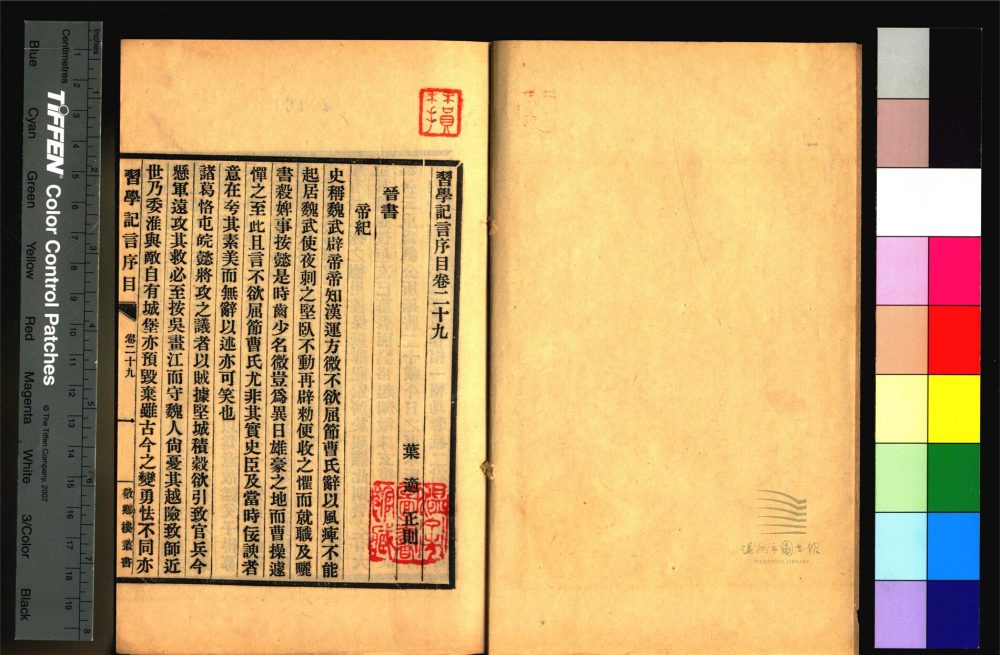 習學記言序目卷二十九
葉適正則
晉書
帝紀
史稱魏武辟帝帝知漢運方微不欲屈節曹氏辭以風痺不能
起居魏武使夜刺之堅臥不動再辟勑便收之懼而就職及曬
書殺婢事按懿是時齒少名微豈爲異日雄豪之地而曹操遽
憚之至此且言不欲屈節曹氏尤非其實史臣及當時佞諛者
意在夸其素美而無辭以述亦可笑也
諸葛恪屯皖懿將攻之議者以賊據堅城積穀欲引致官兵今
懸軍遠攻其救必至按吳畫江而守魏人尙憂其越險致師近
世乃委淮與敵自有城堡亦預毀棄雖古今之變勇怯不同亦
習學記言序目
卷二十九
一
敬鄉樓叢書
溫州市圖書館
WENZHOU LIBRARY
Inches
Centimetres
TIFFEN Color Control Patches
© The Tiffen Company, 2007
Blue Cyan Green Yellow Red Magenta White 3/Color Black
1 2 3 4 5 6 7 8
1 2 3 4 5 6 7 8 9 10 11 12 13 14 15 16 17 18 19